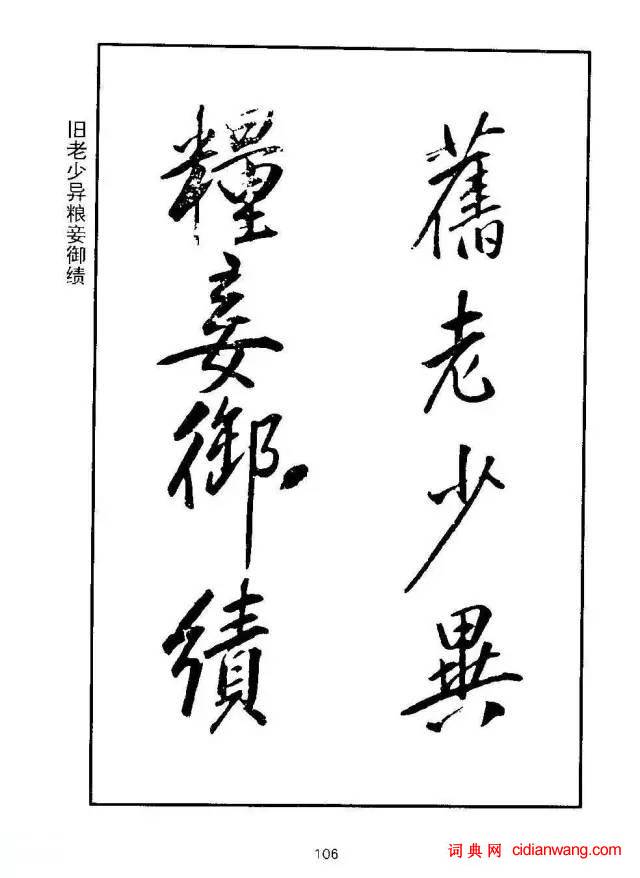 舊老少異
糧妾御績
旧老少异粮妾御绩
106
词典网 cidianwang.com